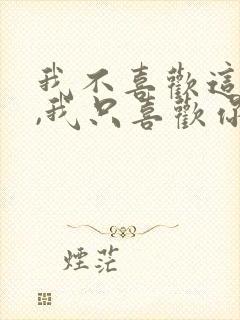 我不喜歡這
,我只喜歡你
煙茫